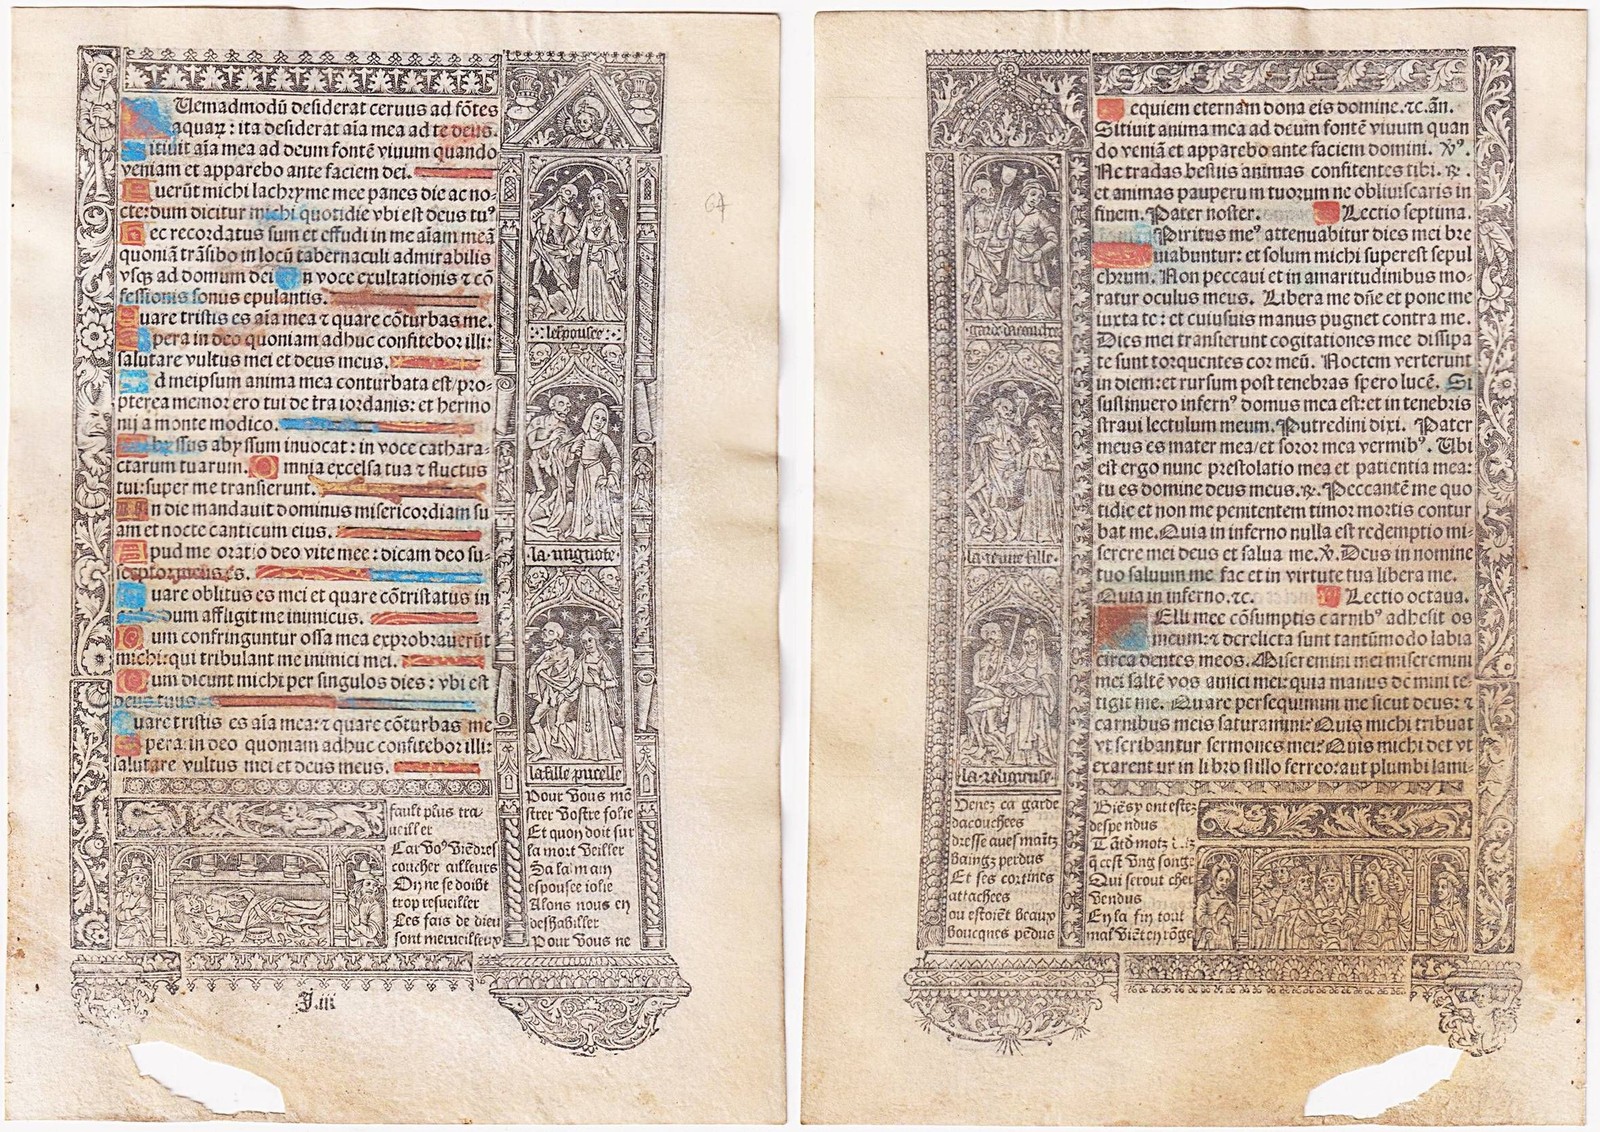 Uemadmodū desiderat ceruus ad fōtes
aquaꝝ: ita desiderat aīa mea ad te deus.
ituit aīa mea ad deum fontē viuum quando
veniam et apparebo ante faciem dei.
uerūt michi lachryme mee panes die ac no-
cte: dum dicitur michi quotidie vbi est deus tuꝰ
ec recordatus sum et effudi in me aīam meā
quoniā trāsibo in locū tabernaculi admirabilis
vsqꝫ ad domum dei
n voce exultationis ⁊ cō
fessionis sonus epulantis.
uare tristis es aīa mea ⁊ quare cōturbas me.
pera in deo quoniam adhuc confitebor illi:
salutare vultus mei et deus meus.
d meipsum anima mea conturbata est/pro-
pterea memor ero tui de tra iordanis: et hermo
nij a monte modico.
byssus abyssum inuocat: in voce cathara-
ctarum tuarum. Omnia excelsa tua ⁊ fluctus
tui: super me transierunt.
n die mandauit dominus misericordiam su
am et nocte canticum eius.
pud me oratio deo vite mee: dicam deo su-
sceptor meus es.
uare oblitus es mei et quare cōtristatus in
dum affligit me inimicus.
um confringuntur ossa mea exprobrauerūt
michi: qui tribulant me inimici mei.
um dicunt michi per singulos dies: vbi est
deus tuus.
uare tristis es aīa mea: ⁊ quare cōturbas me
pera: in deo quoniam adhuc confitebor illi:
salutare vultus mei et deus meus.
lespousee
la mignote
la fille pucelle
Pour vous mō
strer vostre folie
Et quon doit sur
la mort veiller
Sa la main
espousee iolie
Alons nous en
deshabiller
Pour vous ne
fault plus tra
ueiller
Car voꝰ viēdres
coucher ailleurs
On ne se doibt
trop resueiller
Les fais de dieu
sont merueilleux
J.iii
67
equiem eternam dona eis domine.⁊c. añ.
Sitiuit anima mea ad deum fontē viuum quan
do veniā et apparebo ante faciem domini. ℣ꝰ.
Ne tradas bestiis animas confitentes tibi. ℟.
et animas pauperum tuorum ne obliuiscaris in
finem. Pater noster. Lectio septima.
Piritus meꝰ attenuabitur dies mei bre
uiabuntur: et solum michi superest sepul
chrum. Non peccaui et in amaritudinibus mo-
ratur oculus meus. Libera me dñe et pone me
iuxta te: et cuiusuis manus pugnet contra me.
Dies mei transierunt cogitationes mee dissipa
te sunt torquentes cor meū. Noctem verterunt
in diem: et rursum post tenebras spero lucē. Si
sustinuero infernꝰ domus mea est: et in tenebris
straui lectulum meum. Putredini dixi. Pater
meus es mater mea/et soror mea vermibꝰ. Ubi
est ergo nunc prestolatio mea et patientia mea:
tu es domine deus meus. ℟. Peccantē me quo
tidie et non me penitentem timor mortis contur
bat me. Quia in inferno nulla est redemptio mi-
serere mei deus et salua me. ℣. Deus in nomine
tuo saluum me fac et in virtute tua libera me.
Quia in inferno.⁊c. Lectio octaua.
Elli mee cōsumptis carnibꝰ adhesit os
meum: ⁊ derelicta sunt tantūmodo labia
circa dentes meos. Miseremini mei miseremini
mei saltē vos amici mei: quia manus domini te-
tigit me. Quare persequimini me sicut deus: ⁊
carnibus meis saturamini: Quis michi tribuat
vt scribantur sermones mei: Quis michi det vt
exarentur in libro stillo ferreo: aut plumbi lami-
garde dacouche
la ieune fille
la religieuse
Venez ca garde
dacouchees
dresse aues maītz
baingz perdus
Et ses cortines
attachees
ou estoiēt beaux
boucques pēdus
Biēs y ont estez
despendus
Tāt d motz
q cest vng songe
Qui seront cher
vendus
En la fin tout
mal viēt en rōge